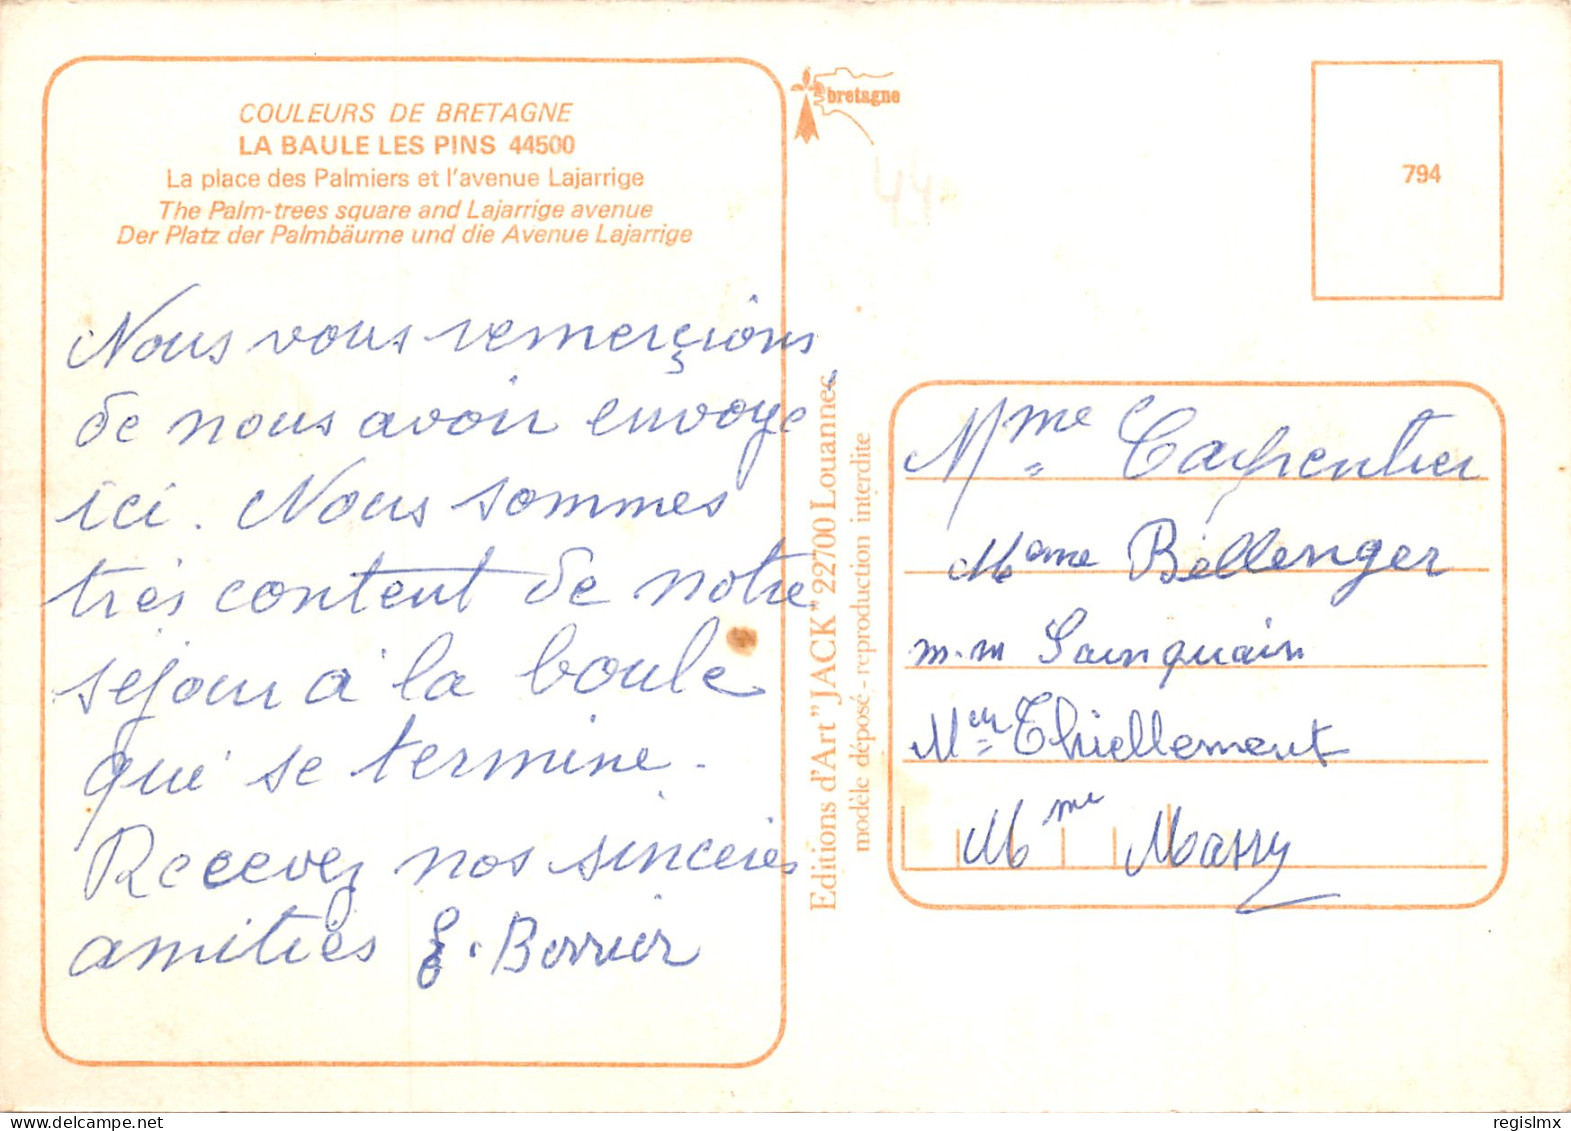 COULEURS DE BRETAGNE
LA BAULE LES PINS 44500
La place des Palmiers et l'avenue Lajarrige
The Palm-trees square and Lajarrige avenue
Der Platz der Palmbäume und die Avenue Lajarrige
Nous vous remerçions
de nous avoir envoye
ici. Nous sommes
très content de notre
séjour à la boule
qui se termine.
Recevez nos sincères
amitiés E. Berrier
bretagne
44
794
Editions d'Art "JACK" 22700 Louannec
modèle déposé - reproduction interdite
Mme Carpentier
Mame Bellenger
m.m Sainquain
Meur Thiellement
Mme Massy
regislmx